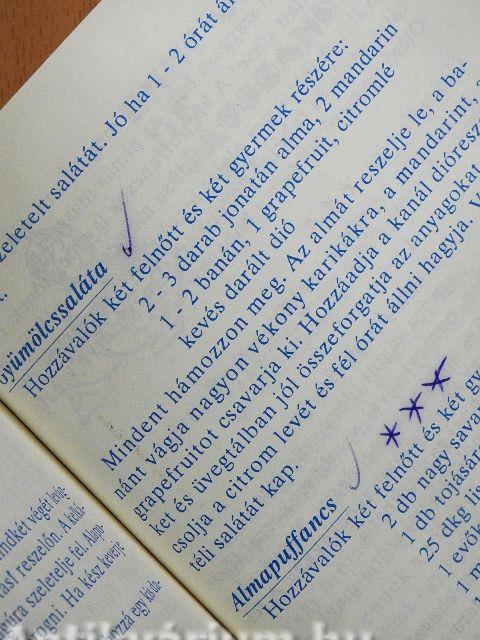 zeletelt salátát. Jó ha 1 - 2 órát ál
yümölcssaláta
Hozzávalók két felnőtt és két gyermek részére:
2 - 3 darab jonatán alma, 2 mandarin
1 - 2 banán, 1 grapefruit, citromlé
kevés darált dió
Mindent hámozzon meg. Az almát reszelje le, a ba-
nánt vágja nagyon vékony karikákra, a mandarint, a
grapefruitot csavarja ki. Hozzáadja a kanál dióresze
ket és üvegtálban jól összeforgatja az anyagokat
csolja a citrom levét és fél órát állni hagyja. V
téli salátát kap.
Almapuffancs
Hozzávalók két felnőtt és két gy
2 db nagy savan
1 db tojásár
25 dkg li
1 evők
1 m
mindkét végét
reszelőn.
szeletelje fel.
Ha kész,
hozzá egy
Antikvárium.hu